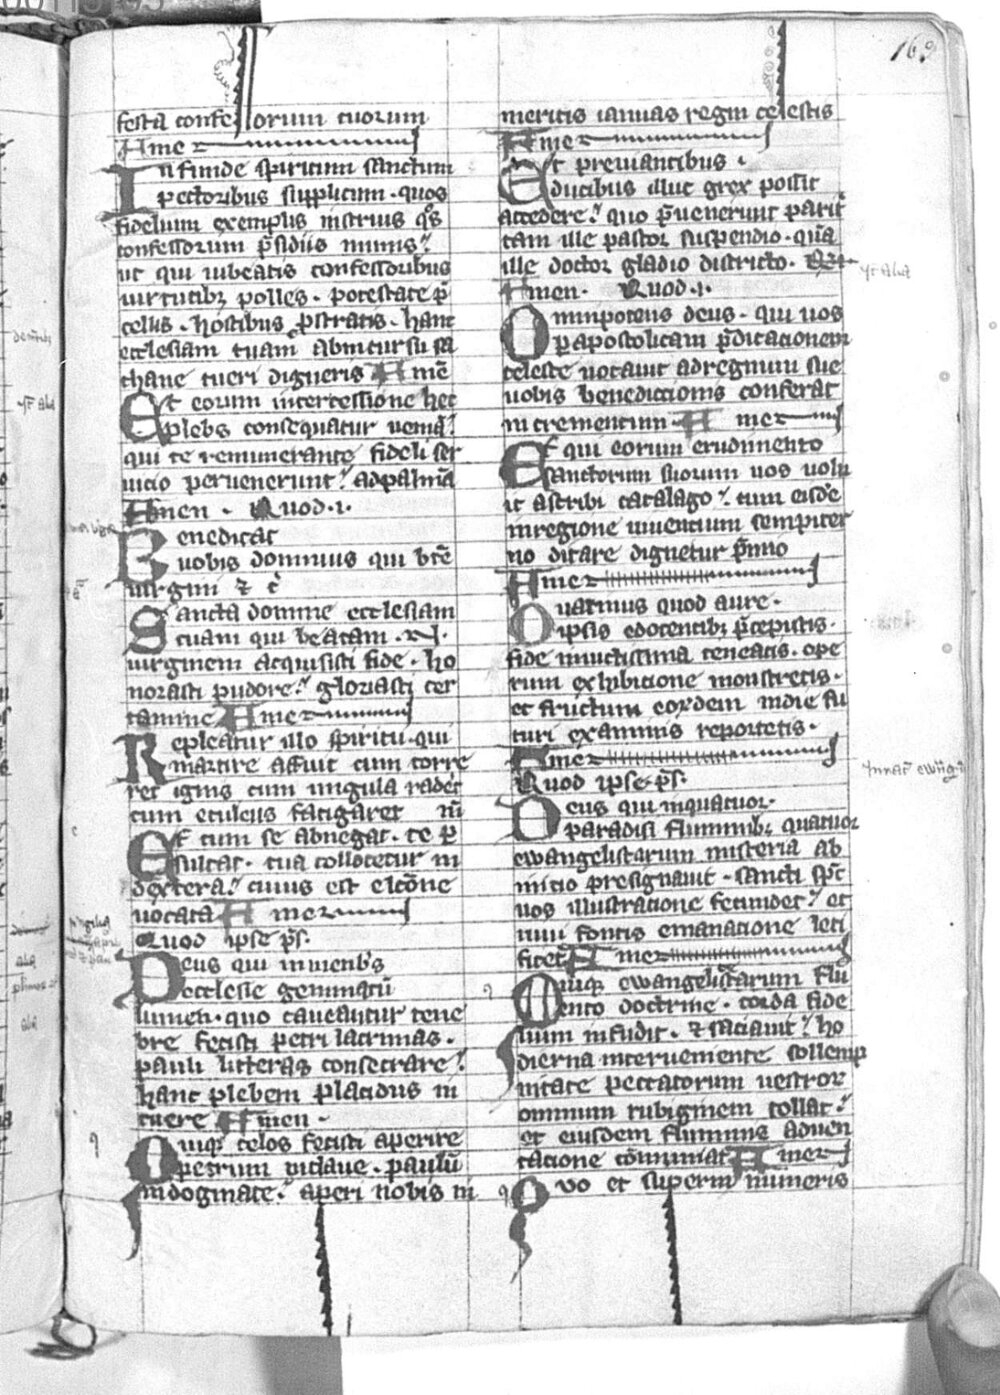 163
festa confessorum tuorum
Amen
Infunde spiritum sanctum
pectoribus supplicum · quos
fidelium exemplis
confessorum p̄sidiis munis?
ut qui iubeatis confessoribus
uirtutibꝫ polles · potestate p̄
cellis · hostibus pstratis · hanc
ecclesiam tuam ab incursu sa
thane tueri digneris Amē
Et eorum intercessione hec
plebs consequatur ueniā?
qui te remunerante fideli ser
uicio peruenerunt? ad palmā
Amen · Quod · i ·
Benedicat
uobis dominus qui btē
uirgini ⁊ c̄
Sancta domine ecclesiam
tuam qui beatam · N ·
uirginem acquisisti fide · ho
norasti pudore? gloriasti cer
tamine Amen
Repleatur illo spiritu · qui
martire affuit cum torre
ret ignis cum ungula radēt
cum eculeus fatigaret
Et cum se abnegat · te p̄
sultat · tua collocetur in
dextera? cuius est elcōne
uocata Amen
Quod ipse p̄s ·
Deus qui in
ecclesie geminatū
lumen · quo caueantur tene
bre fecisti petri lacrimas ·
pauli litteras consecrare?
hanc plebem placidus in
tuere Amen ·
Quiqꝫ celos fecisti aperire
petrum in claue · paulū
in dogmate? aperi nobis in
meritis ianuas regni celestis
Amen
Et preuiantibus ·
ducibus illuc grex possit
accedere? quo p̄uenerunt parit̄
tam ille pastor suspendio · quā
ille doctor gladio districto ·
Amen · Quod · i ·
Omnipotens deus · qui uos
p apostolicam p̄dicacionem
celeste uocauit ad regnum sue
uobis benedictionis conferat
incrementum · Amen
Et qui eorum erudimento
sanctorum suorum uos uolu
it ascribi catalago? cum eisdē
in regione uiuentium sempiter
no ditare dignetur p̄mio
Amen
Quatinus quod a ure ·
ipsis edocentibꝫ p̄cepistis ·
fide inuictissima teneatis · ope
rum exhibicione monstretis ·
et fructum eordem in die fu
turi examinis reportetis ·
Amen
Quod ipse p̄s ·
Deus qui in quatuor ·
paradisi fluminibꝫ quatuor
ewangelistarum misteria ab
inicio presignauit · sancti sp̄c
uos illustracione fecundet? et
uiui fontis emanacione leti
ficet Amen
Quiqꝫ ewangelistarum flu
ento doctrine · corda fide
lium infudit · ⁊ saciauit? ho
dierna interueniente sollemp
nitate peccatorum uestror
omnium rubiginem tollat?
et eiusdem fluminis aduen
tacione Amen
Quo et superni muneris